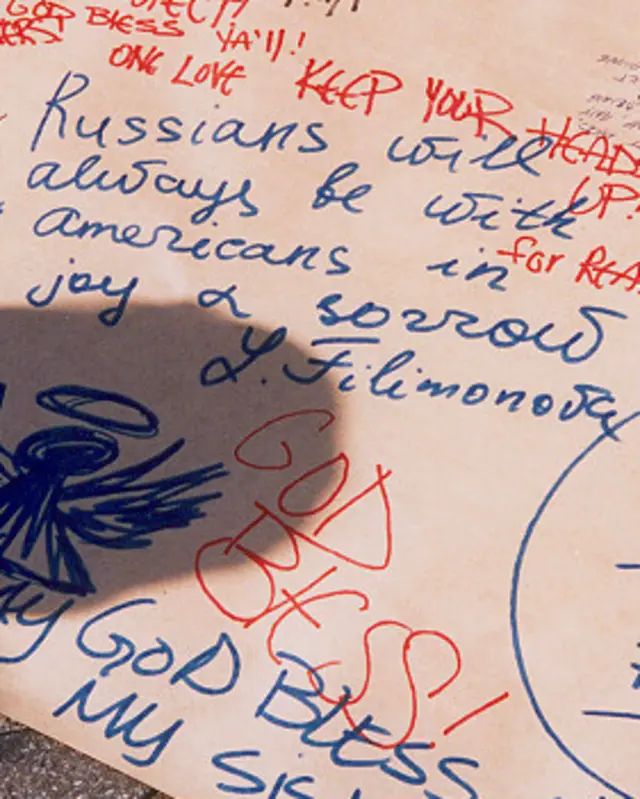 GOD BLESS YA'll!
ONE LOVE KEEP YOUR HEAD
UP!
for REA
Russians will
always be with
americans in
joy & sorrow
Y. Filimonova
GOD
BLESS!
GOD BLESS
MY SIS